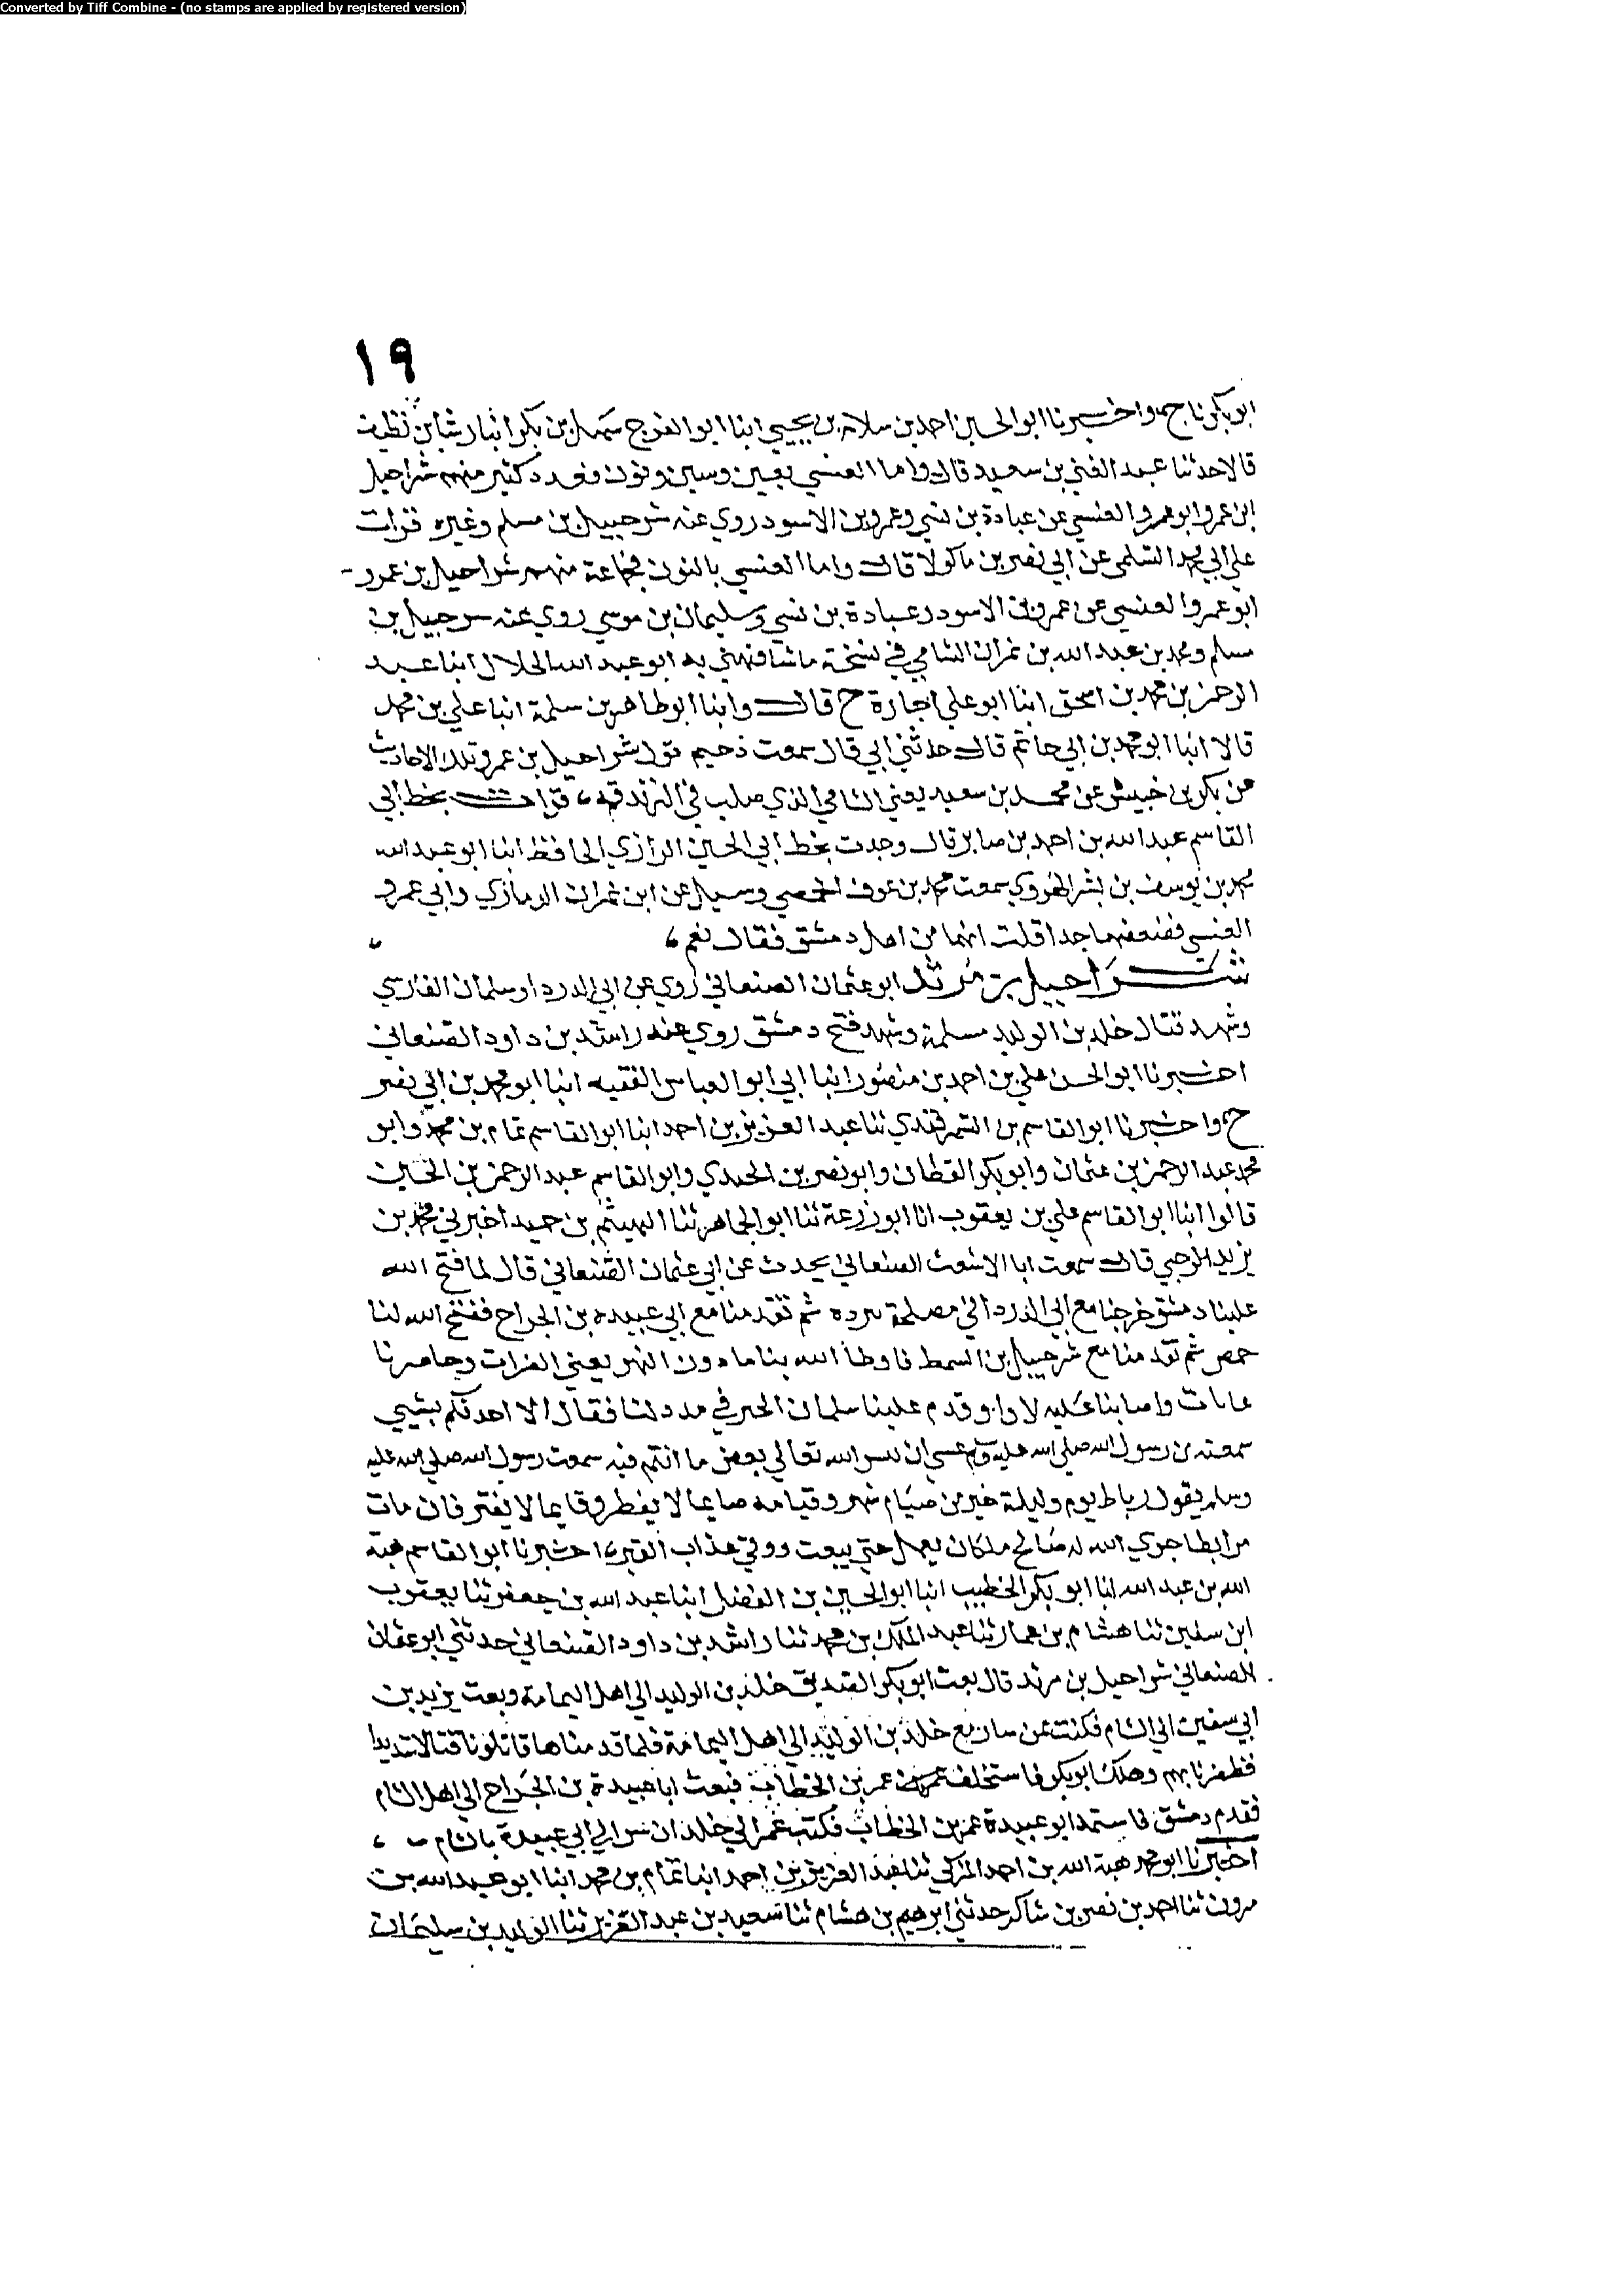 Converted by Tiff Combine - (no stamps are applied by registered version)
١٩
ابو بكر ناجم واخبرنا ابو الحسين احمد بن سلامه بن يحيي انبا ابو الفرج سهل بن بكر انبا رشا بن نظيف
قالا حدثنا عبد الغني بن سعيد قال واما العنسي بعين وسين ونون فعدد كثير منهم شراحيل
ابن عمرو ابو عمرو العنسي عن عبادة بن نسي وعمرو بن الاسود روي عنه شرحبيل بن مسلم وغيره قرات
علي ابي محمد السلمي عن ابي نصر بن ماكولا قال واما العنسي بالنون فجماعة منهم شراحيل بن عمرو
ابو عمرو العنسي عن عمرو بن الاسود وعبادة بن نسي وسليمان بن موسي روي عنه سرحبيل بن
مسلم ومحمد بن عبد الله بن نمران الشامي في نسخة ما شافهني به ابو عبد الله الخلال انبا عبد
الرحمن بن محمد بن اسحق انبا ابو علي اجازة ح قال وانبا ابو طاهر بن سلمة انبا علي بن محمد
قالا انبا ابو محمد بن ابي حاتم قال حدثني ابي قال سمعت دحيم يقول شراحيل بن عمرو تلك الاحاديث
عن بكر بن خنيس عن محمد بن سعيد يعني الشامي الذي صلب في الزندقه قرات بخط ابي
القاسم عبد الله بن احمد بن صابر قال وجدت بخط ابي الحسين الرازي الحافظ انبا ابو عبد الله
محمد بن يوسف بن بشر الهروي سمعت محمد بن عوف الحمصي وسيل عن ابن نمران الدمازي وابي عمرو
العنسي فضعفهما جدا قلت انهما من اهل دمشق فقال نعم
شراحيل بن مرثد ابو عثمان الصنعاني روي عن ابي الدردا وسلمان الفارسي
وشهد قتال خلد بن الوليد مسلمة وشهد فتح دمشق روي عنه راشد بن داود الصنعاني
اخبرنا ابو الحسن علي بن احمد بن منصور انبا ابي ابو العباس الفقيه انبا ابو محمد بن ابي نصر
ح واخبرنا ابو القاسم بن السمرقندي ثنا عبد العزيز بن احمد انبا ابو القاسم تمام بن محمد وابو
محمد عبد الرحمن بن عثمان وابو بكر القطان وابو نصر بن الجندي وابو القاسم عبد الرحمن بن الحسين
قالوا انبا ابو القاسم علي بن يعقوب انا ابو زرعة ثنا ابو الجماهر ثنا الهيثم بن حميد اخبرني محمد بن
يزيد الرحبي قال سمعت ابا الاشعث الصنعاني يحدث عن ابي عثمان الصنعاني قال لما فتح الله
علينا دمشق خرجنا مع ابي الدردا في مصلحة برده ثم تقدمنا مع ابي عبيده بن الجراح ففتح الله لنا
حمص ثم تقدمنا مع شرحبيل بن السمط فاوطا الله بنا ما دون النهر يعني الفرات وحاصرنا
عانات واصابنا عليه لاوا وقدم علينا سلمان الخير في مدد لنا فقال الا احدثكم بشيي
سمعته من رسول الله صلي الله عليه وسلم عسي ان يسر الله تعالي بعض ما انتم فيه سمعت رسول الله صلي الله عليه
وسلم يقول رباط يوم وليلة خير من صيام شهر وقيامه صايما لا يفطر وقايما لا يفتر فان مات
مرابطا جري الله له صالح ما كان يعمل حتي يبعث ووقي عذاب القبر اخبرنا ابو القاسم هبة
الله بن عبد الله انبا ابو بكر الخطيب انبا ابو الحسين بن الفضل ابنا عبد الله بن جعفر ثنا يعقوب
ابن سفين ثنا هشام بن عمار ثنا عبد الملك بن محمد ثنا راشد بن داود الصنعاني حدثني ابو عثمان
الصنعاني شراحيل بن مرثد قال بعث ابو بكر الصديق خلد بن الوليد الي اهل اليمامة وبعث يزيد بن
ابي سفين الي الشام فكنت عن سار مع خلد بن الوليد الي اهل اليمامة فلما قدمناها قاتلونا قتالا شديدا
فظفرنا بهم وهلك ابو بكر فاستخلف عمر بن الخطاب فبعث ابا عبيدة بن الجراح الي اهل الشام
فقدم دمشق فاستمد ابو عبيدة عمر بن الخطاب فكتب عمر الي خلد ان سر الي ابي عبيدة بالشام
اخبرنا ابو محمد هبة الله بن احمد المزكي ثنا عبد العزيز بن احمد انبا تمام بن محمد انبا ابو عبد الله بن
مرون ثنا احمد بن نصر بن شاكر حدثني ابرهيم بن هشام ثنا سعيد بن عبد العزيز ثنا الوليد بن سليمان